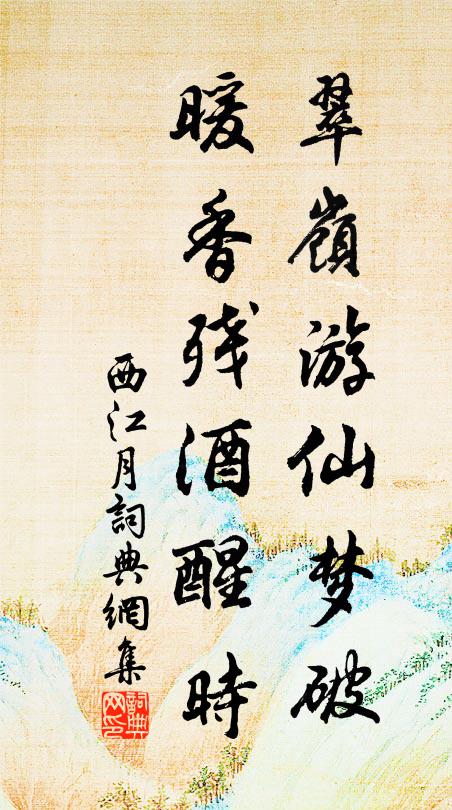 翠嶺游仙梦破
暖香残酒醒時
西江月詞典網集
詞典网印